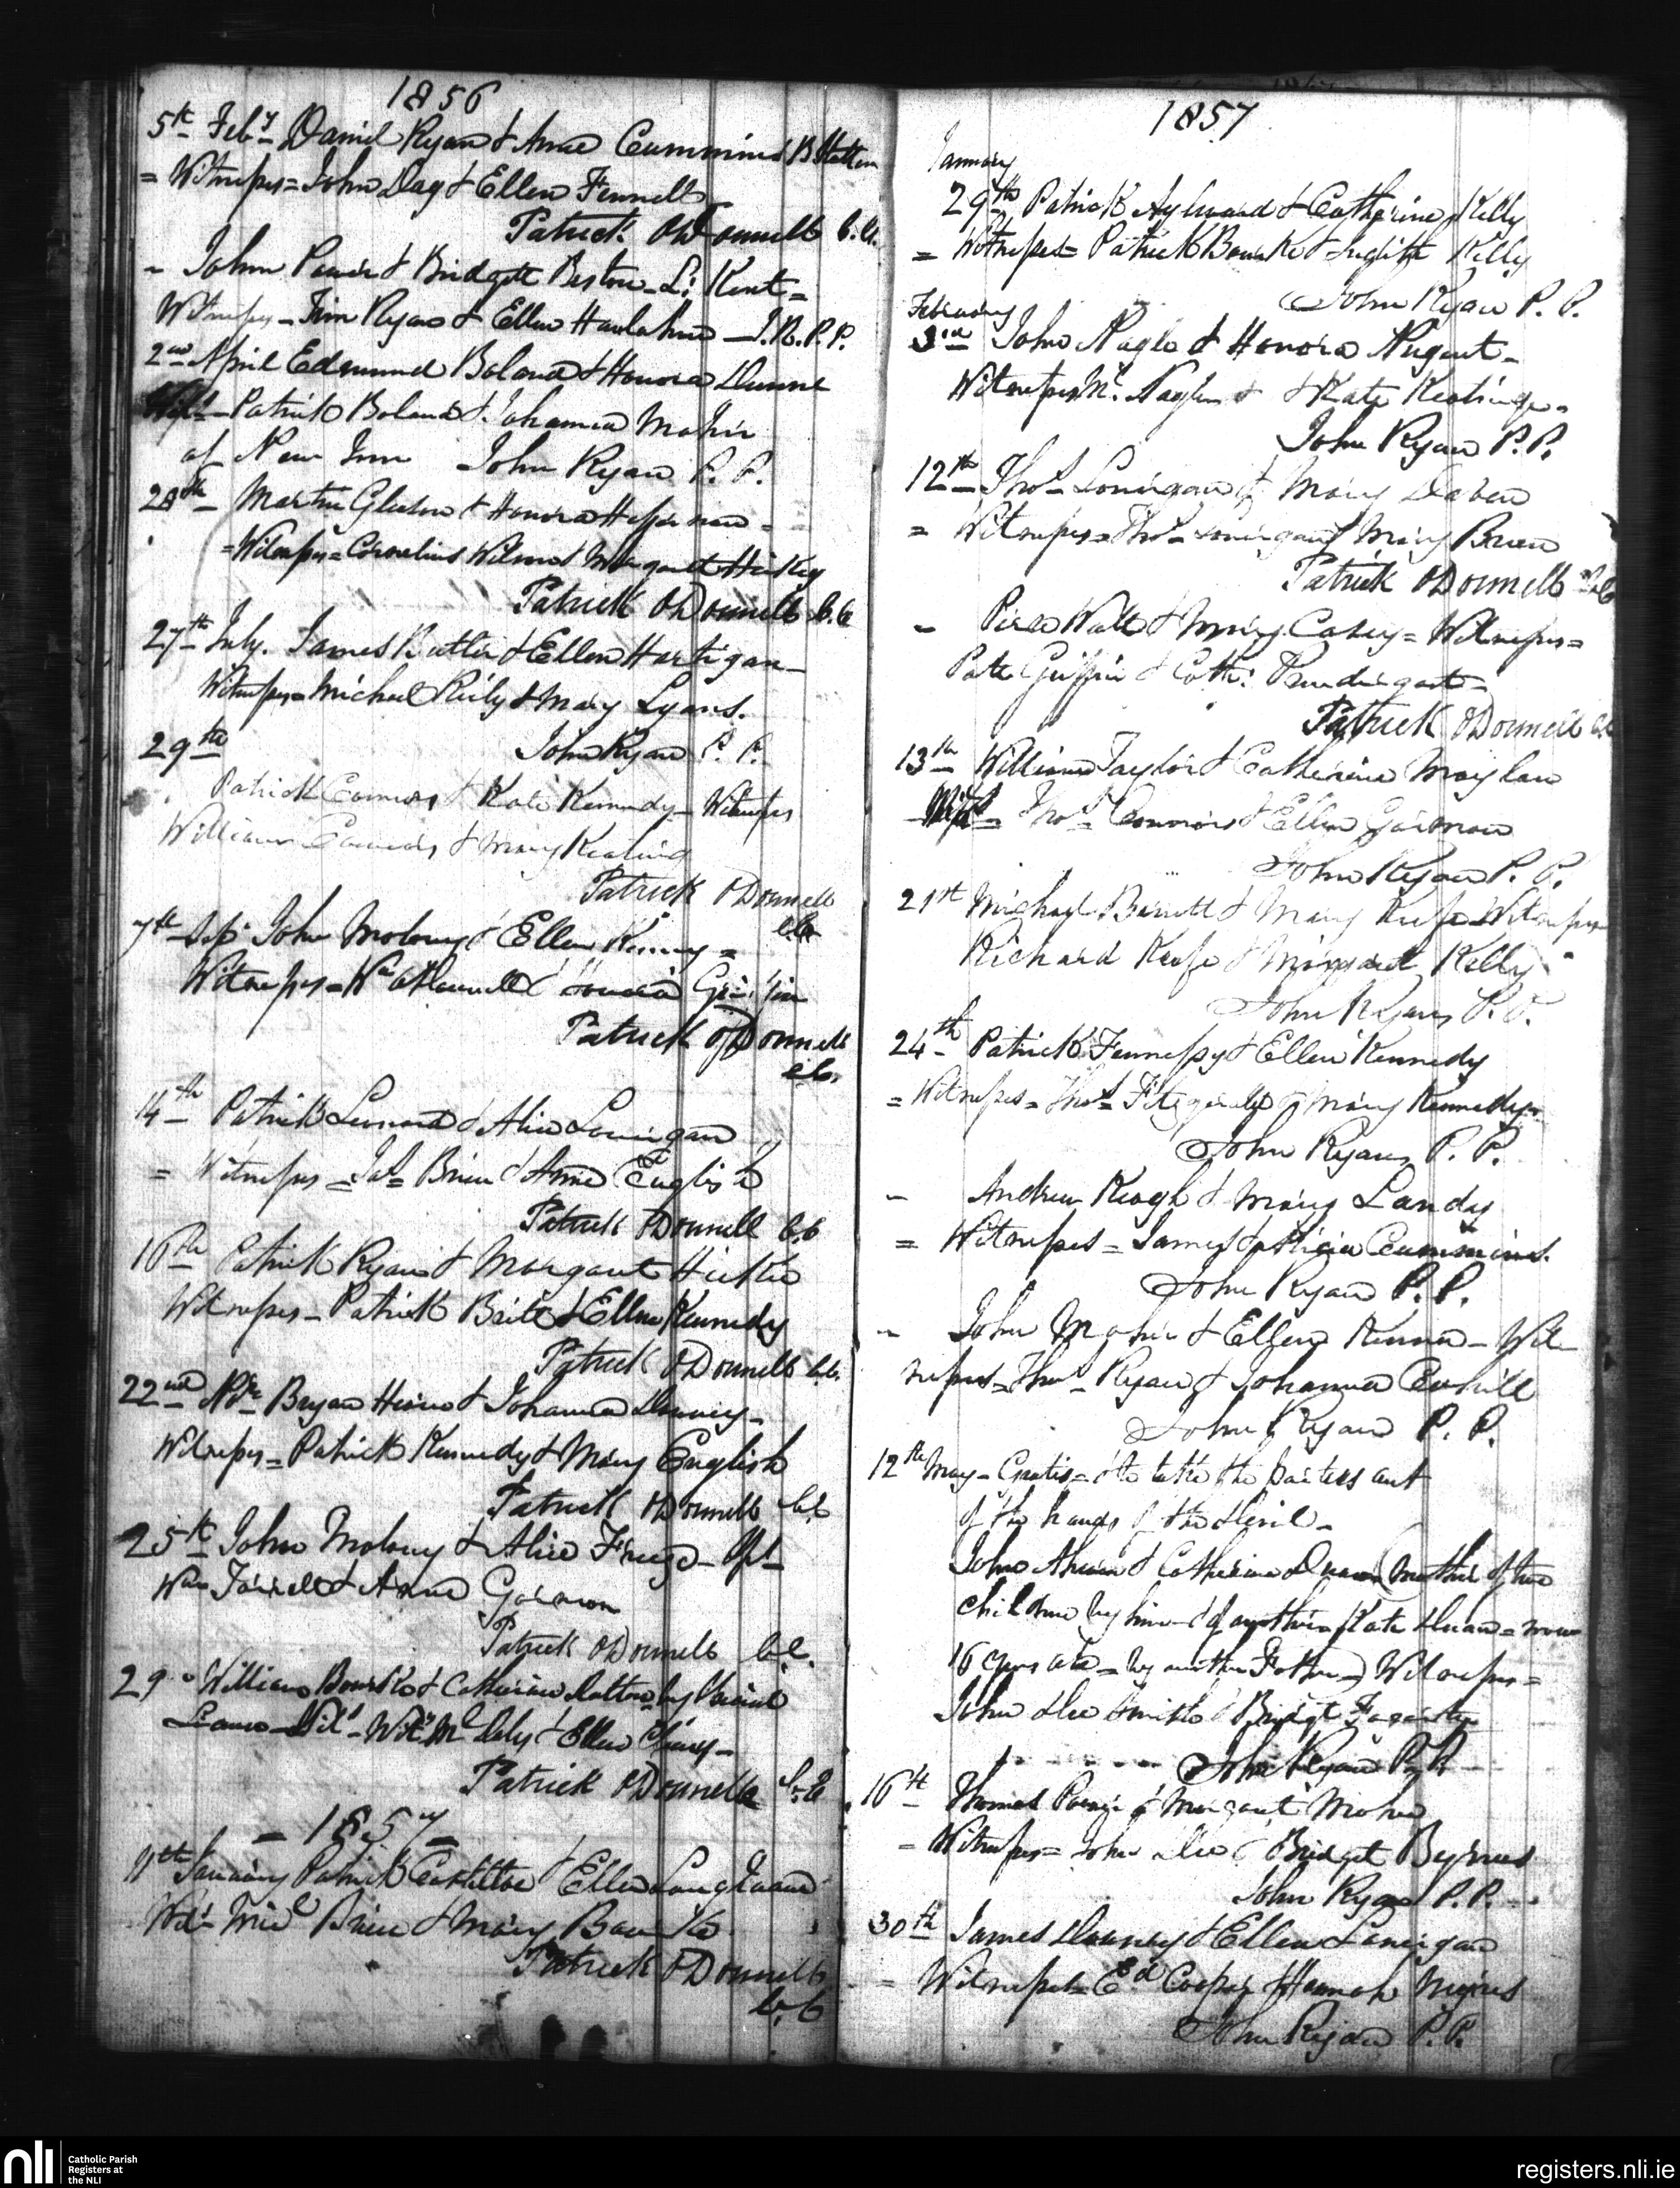 1856
5th Feby Daniel Ryan & Anne Cummins B
= Witnesses = John Day & Ellen Fennell
Patrick O'Donnell C.C.
~ John Power & Bridget Beston - Lr Kent =
Witnesses - Tim Ryan & Ellen Hanlahan - J.R.P.P.
2nd April Edmund Boland & Honora Dunne
Wits - Patrick Boland & Johanna Maher
of New Inn John Ryan P.P.
28th - Martin Gleeson & Honora Heffernan =
= Witnesses = Cornelius & Margaret Hickey
Patrick O'Donnell C.C.
27th July. James Butler & Ellen Hartigan -
Witnesses = Michael Reily & Mary Lyons.
29th John Ryan P.P.
Patrick Connors & Kate Kennedy - Witnesses
William & Mary Keating
Patrick O'Donnell
C.C.
7th Sep. John Molony & Ellen =
Witnesses = Wm & Honora Griffin
Patrick O'Donnell
C.C.
14th Patrick Leonard & Alice Lonigan
= Witnesses = Jas Brien & Anne English
Patrick O'Donnell C.C.
16th Patrick Ryan & Margaret Hickie
Witnesses - Patrick Britt & Ellen Kennedy
Patrick O'Donnell C.C.
22nd Nbr Bryan & Johanna Downey -
Witnesses = Patrick Kennedy & Mary English
Patrick O'Donnell C.C.
25th John Molony & Alice -
Wm Farrell & Anne Gorman
Patrick O'Donnell C.C.
29 William Bourke & Catherine Dalton by
- Wits Ml Daly & Ellen
Patrick O'Donnell C.C.
- 1857 -
11th January Patrick & Ellen
Wits - Micl Brien & Mary Bourke
Patrick O'Donnell
C.C.
1857
January
29th Patrick Aylward & Catherine Kelly
= Witnesses = Patrick Bourke & Judith Kelly
John Ryan P.P.
February
3rd John Nagle & Honora Nugent -
Witnesses Ml. Nagle & Kate Keatinge -
John Ryan P.P.
12th Thos Lonigan & Mary Daven
= Witnesses = Thos Lonigan & Mary Brien
Patrick O'Donnell C.C.
~ Pierce Wall & Mary Casey = Witnesses =
Patk Griffin & Cath: Prendergast -
Patrick O'Donnell C.C.
13th William Taylor & Catherine Moylan
Wits - Thos Connors & Ellen Gorman
John Ryan P.P.
21st Michael Barrett & Mary Keefe Witnesses
Richard Keefe & Margaret Kelly -
John Ryan P.P.
24th Patrick Fennessy & Ellen Kennedy
= Witnesses = Thos Fitzgerald & Mary Kennedy -
John Ryan P.P.
~ Andrew Keogh & Mary Landy
= Witnesses = James & Alicia Cummins.
John Ryan P.P.
~ John Maher & Ellen Kenna - Wit-
nesses = Thos Ryan & Johanna Carhill
John Ryan P.P.
12th May - Gratis = & to take the parties out
of the hands of the devil -
John Ahearn & Catherine Duan (mother of two
children by him & of another Kate Duan = now
16 years old = by another Father) Witnesses =
John Dee Smith & Bridget Fogarty
John Ryan P.P.
16th Thomas Power & Margaret Maher
= Witnesses = John Dee & Bridget Byrnes
John Ryan P.P.
30th James Downey & Ellen Lanigan
= Witnesses = Ed Cooper & Hannah Myres
John Ryan P.P.
nli
Catholic Parish
Registers at
the NLI
registers.nli.ie